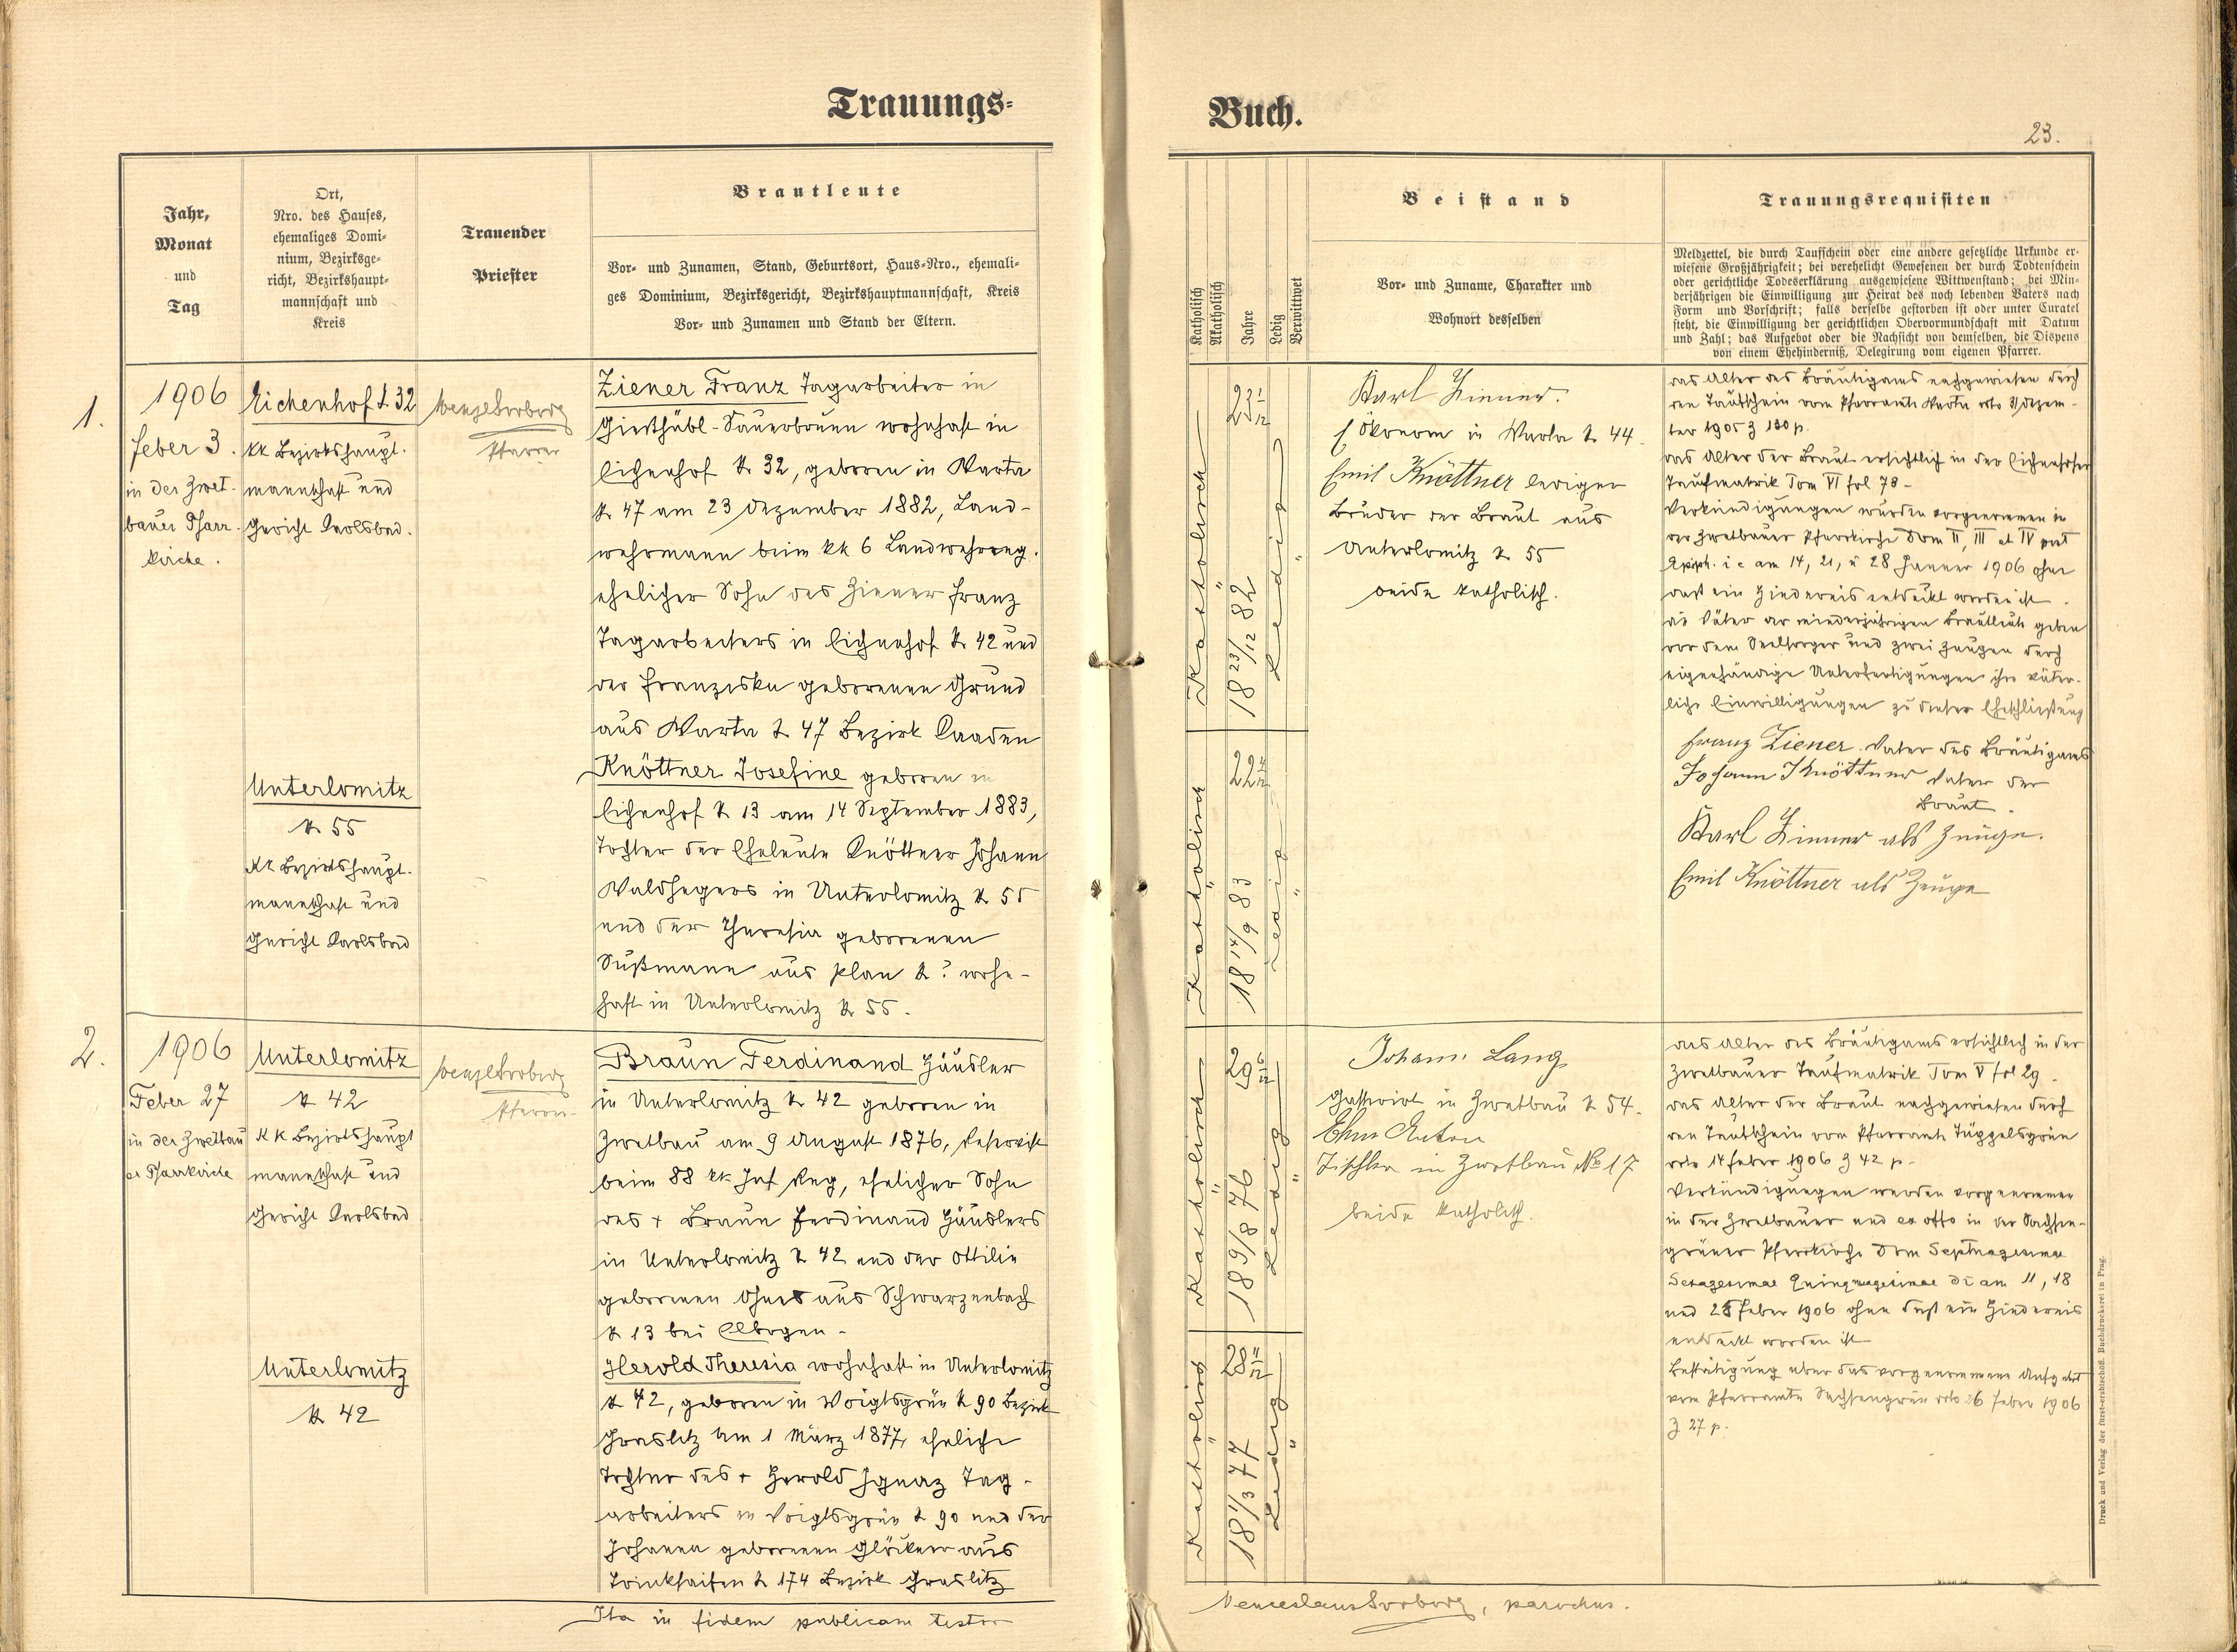 Trauungs-
Buch.
23.
Jahr,
Monat
und
Tag
Ort,
Nro. des Hauses,
ehemaliges Domi-
nium, Bezirksge-
richt, Bezirkshaupt-
mannschaft und
Kreis
Trauender
Priester
Brautleute
Vor- und Zunamen, Stand, Geburtsort, Haus-Nro., ehemali-
ges Dominium, Bezirksgericht, Bezirkshauptmannschaft, Kreis
Vor- und Zunamen und Stand der Eltern.
Katholisch
Akatholisch
Jahre
Ledig
Verwittwet
Beistand
Vor- und Zuname, Charakter und
Wohnort desselben
Trauungsrequisiten
Meldzettel, die durch Taufschein oder eine andere gesetzliche Urkunde er-
wiesene Großjährigkeit; bei verehelicht Gewesenen der durch Todtenschein
oder gerichtliche Todeserklärung ausgewiesene Wittwenstand; bei Min-
derjährigen die Einwilligung zur Heirat des noch lebenden Vaters nach
Form und Vorschrift; falls derselbe gestorben ist oder unter Curatel
steht, die Einwilligung der gerichtlichen Obervormundschaft mit Datum
und Zahl; das Aufgebot oder die Nachsicht von demselben, die Dispens
von einem Ehehinderniß, Delegirung vom eigenen Pfarrer.
1.
1906
feber 3.
in der Zwet-
bauer Pfarr-
kirche.
Eichenhof N 32
kk Bezirkshaupt-
mannschaft und
Gericht Karlsbad.
Unterlomitz
N 55
kk Bezirkshaupt-
mannschaft und
Gericht Karlsbad
Wenzel
Pfarrer
Ziener Franz Tagarbeiter in
Gießhübl-Sauerbrunn wohnhaft in
Eichenhof N 32, geboren in Warta
N 47 am 23 Dezember 1882, Land-
wehrmann beim kk 6 Landwehrreg.
ehelicher Sohn des Ziener Franz
Tagarbeiters in Eichenhof N 42 und
der Franziska geborenen Grund
aus Warta N 47 Bezirk Kaaden
Knöttner Josefine geboren in
Eichenhof N 13 am 14 September 1883,
Tochter der Eheleute Knöttner Johann
Waldhegers in Unterlomitz N 55
und der Theresia geborenen
Süßmann aus Plan N ? wohn-
haft in Unterlomitz N 55.
Katholisch
23 1/12
18 23/12 82
Ledig
Katholisch
22 4/12
18 14/9 83
Ledig
Karl Zienner.
Ökonom in Warta N 44.
Emil Knöttner lediger
Bruder der Braut aus
Unterlomitz N 55
beide katholisch.
das Alter des Bräutigams nachgewiesen durch
den Taufschein vom Pfarramte Warta dto 31 Dezem-
ber 1905 Z 130 p.
das Alter der Braut ersichtlich in der Eichenhofer
Taufmatrik Tom VI fol 78 -
Verkündigungen wurden vorgenommen in
der Zwetbauer Pfarrkirche Dom II, III et IV post
Epiph. i e am 14, 21, u 28 Janner 1906 ohne
daß ein Hindernis entdeckt worden ist.
die Väter der minderjährigen Brautleute geben
vor dem Seelsorger und zwei Zeugen durch
eigenhändige Unterfertigungen ihre väter-
liche Einwilligungen zu dieser Eheschließung
Franz Ziener Vater des Bräutigams
Johann Knöttner Vater der
Braut.
Karl Zienner als Zeuge.
Emil Knöttner als Zeuge
2.
1906
Feber 27
in der Zwetbau
er Pfarrkirche
Unterlomitz
N 42
KK Bezirkshaupt
mannschaft und
Gericht Karlsbad
Unterlomitz
N 42
Wenzel
Pfarrer
Braun Ferdinand Häusler
in Unterlomitz N 42 geboren in
Zwetbau am 9 August 1876, Reservist
beim 88 kk Inf Reg, ehelicher Sohn
des + Braun Ferdinand Häuslers
in Unterlomitz N 42 und der Ottilie
geborenen aus Schwarzenbach
N 13 bei Elbogen -
Herold Theresia wohnhaft in Unterlomitz
N 42, geboren in Voigtsgrün N 90 Bezirk
Graslitz am 1 März 1877, eheliche
Tochter des + Herold Ignaz Tag-
arbeiters in Voigtsgrün N 90 und der
Johanna geborenen Glöckner aus
Trinksaifen N 174 Bezirk Graslitz
Katholisch
29 6/12
18 9/8 76
Ledig
Katholisch
28 11/12
18 1/3 77
Ledig
Johann Lang
Gastwirt in Zwetbau N 54.
Anton
Tischler in Zwetbau No 17
beide katholisch.
das Alter des Bräutigams ersichtlich in der
Zwetbauer Taufmatrik Tom V fol 29.
das Alter der Braut nachgewiesen durch
den Taufschein vom Pfarramte Tüppelsgrün
dto 14 feber 1906 Z 42 p-
Verkündigungen wurden vorgenommen
in der Zwetbauer und ex offo in der Sachsen-
grüner Pfarrkirche Dom Septuagesimae
Sexagesimae Quinquagesimae di am 11, 18
und 25 feber 1906 ohne daß ein Hindernis
entdeckt worden ist
Bestätigung über das vorgenommene Aufgebot
vom Pfarramte Sachsengrün dto 26 feber 1906
Z 27 p.
Ita in fidem publicam testor
Venceslaus, parochus.
Druck und Verlag der fürst-erzbischöfl. Buchdruckerei in Prag.